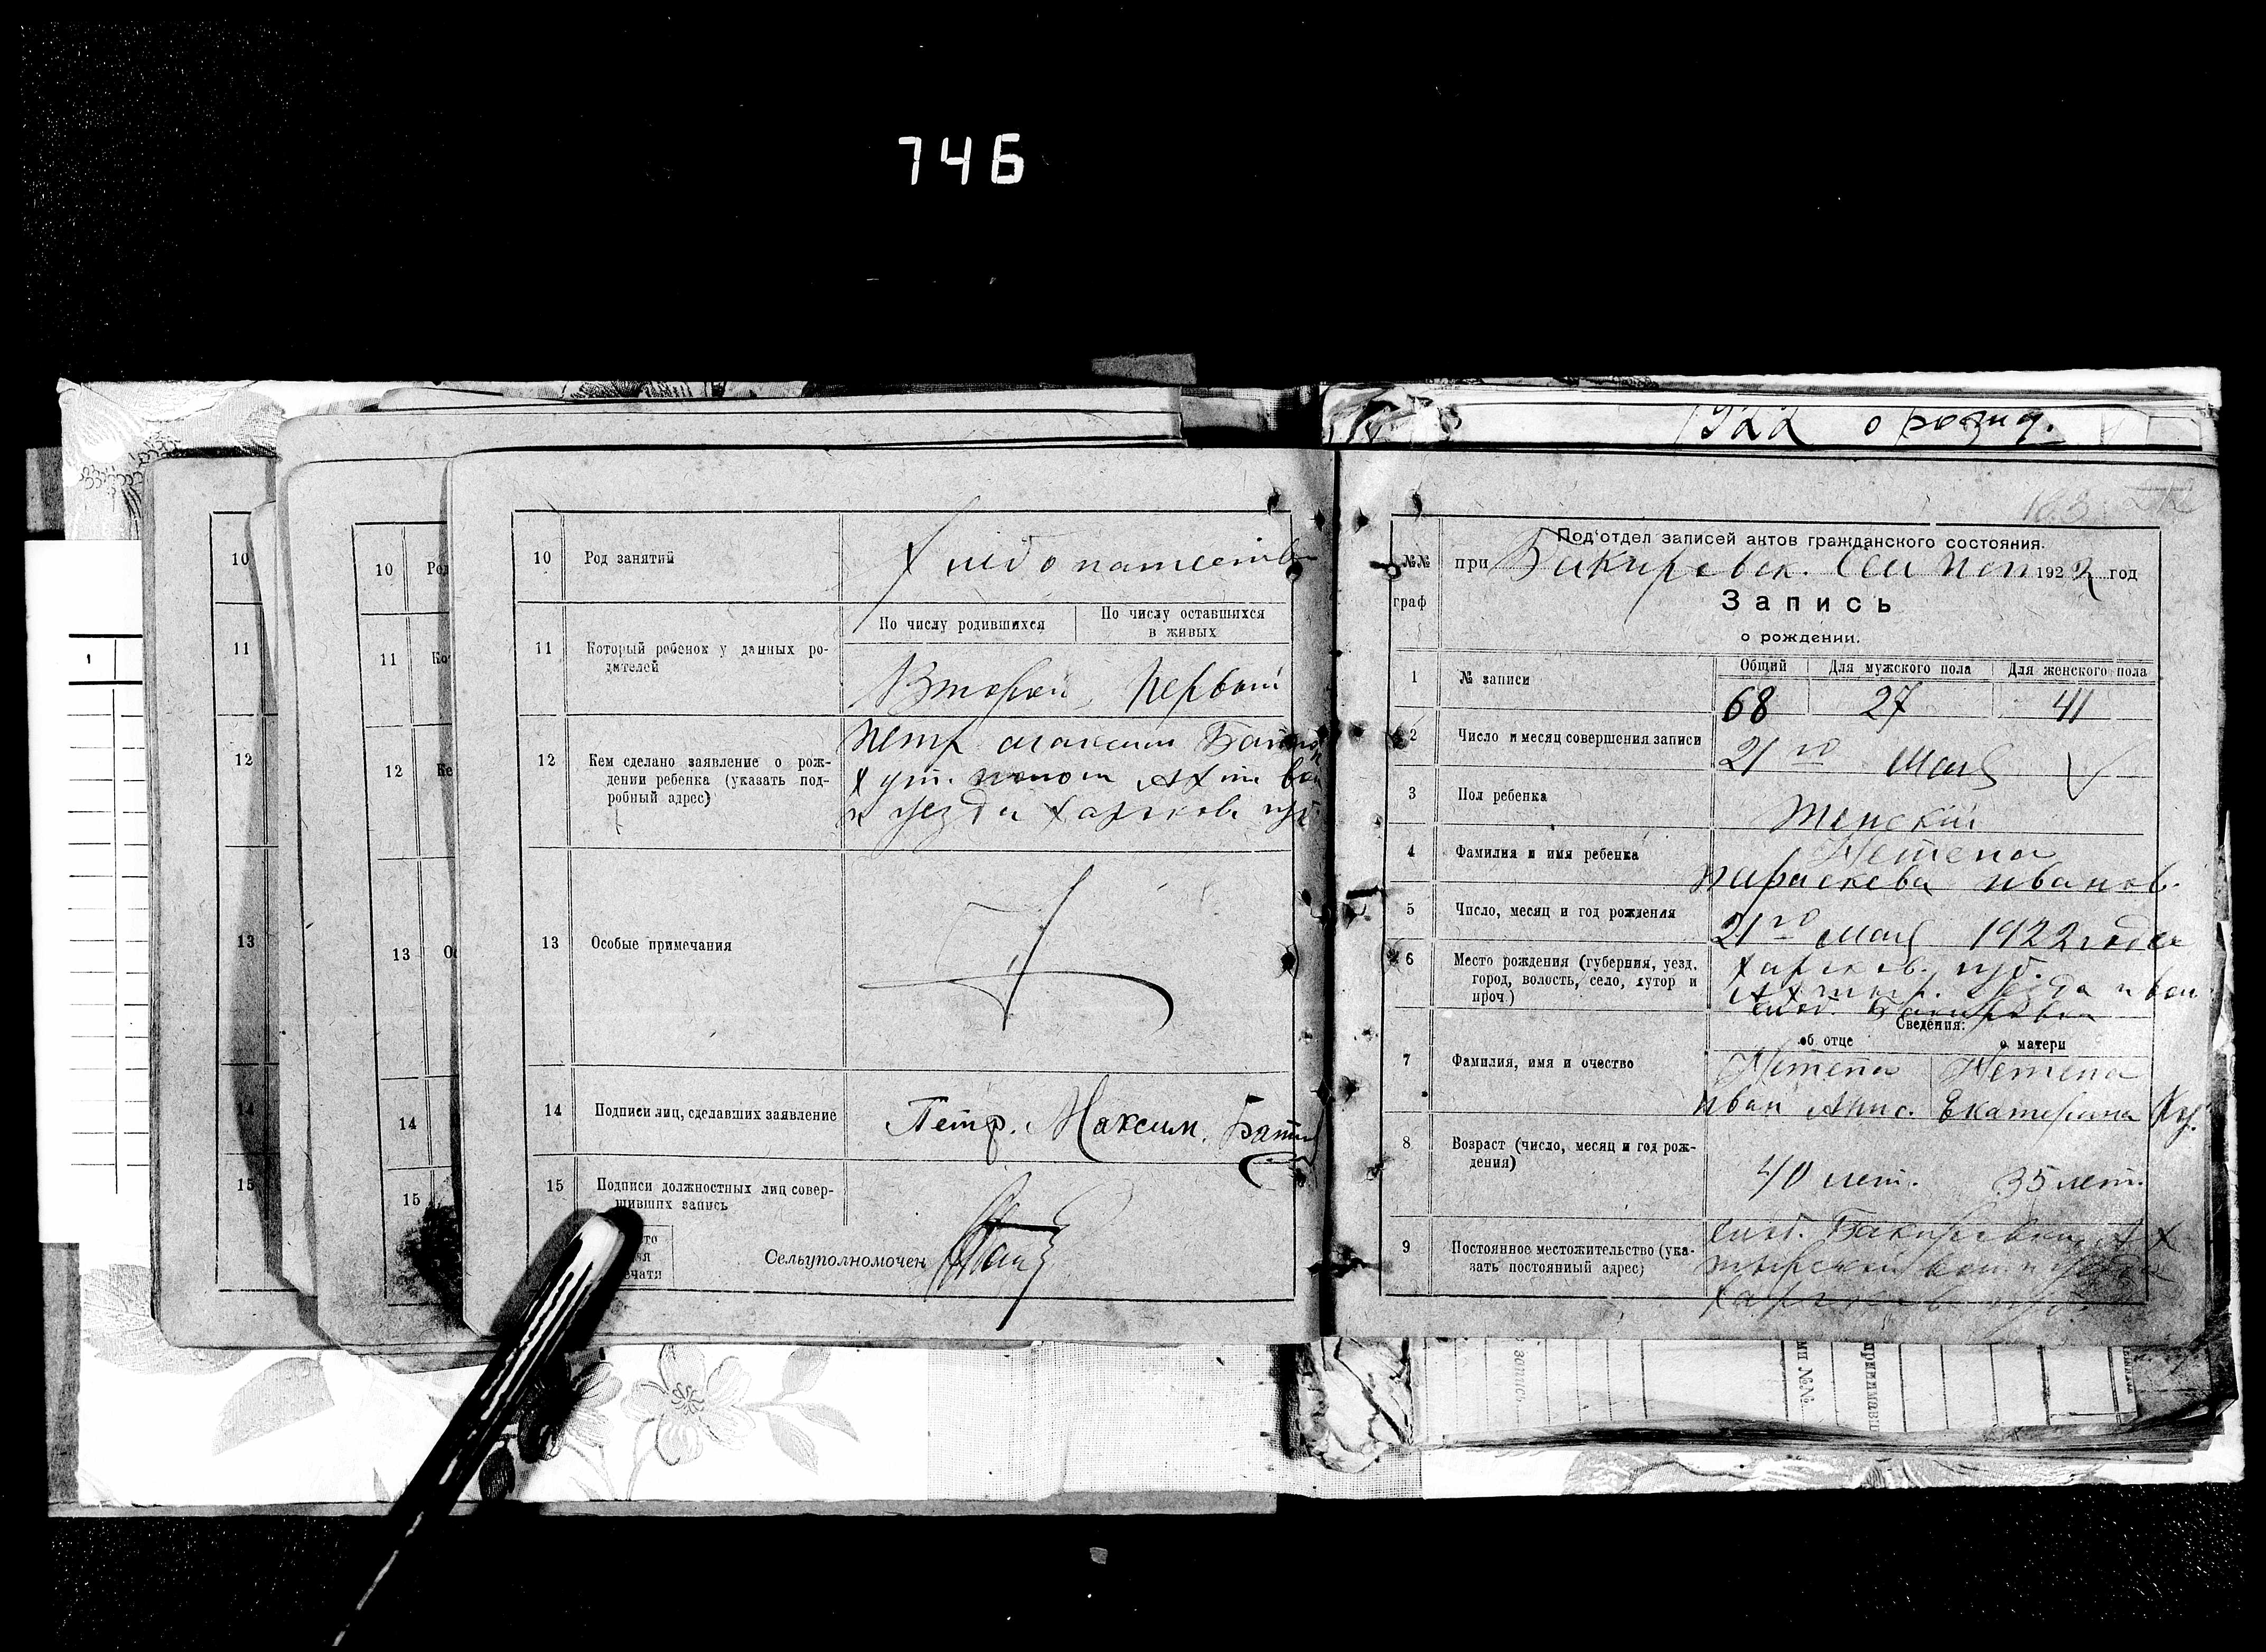 746
1922 о рожд.
10 Род занятий Хлебопашество
11 Который ребенок у данных ро-
дителей
По числу родившихся
По числу оставшихся
в живых
Второй Первый
12 Кем сделано заявление о рож-
дении ребенка (указать под-
робный адрес)
Петр Максим
хут.
и уезда Харьков. губ.
13 Особые примечания
14 Подписи лиц, сделавших заявление Петр. Максим.
15 Подписи должностных лиц совер-
шивших запись
Сельуполномочен
10
11
12
13
14
15
10
11
12
13
14
15
183
Под'отдел записей актов гражданского состояния.
№№
граф
при Бакировск. 1922 год
Запись
о рождении.
1 № записи
Общий Для мужского пола Для женского пола
68 27 41
2 Число и месяц совершения записи 21го Мая
3 Пол ребенка Женский
4 Фамилия и имя ребенка Нетепа
Параскева Иванов.
5 Число, месяц и год рождения 21го Мая 1922 года
6 Место рождения (губерния, уезд,
город, волость, село, хутор и
проч.)
Харьков. губ.
Ахтыр. уезда и вол.
слоб. Бакировка
Сведения:
об отце о матери
7 Фамилия, имя и очество Нетепа Нетепа
Иван Екатерина
8 Возраст (число, месяц и год рож-
дения)
40 лет. 35 лет.
9 Постоянное местожительство (ука-
зать постоянный адрес)
слоб. Бакировки Ах
тырской вол. и уезда
Харьков. губ.
1